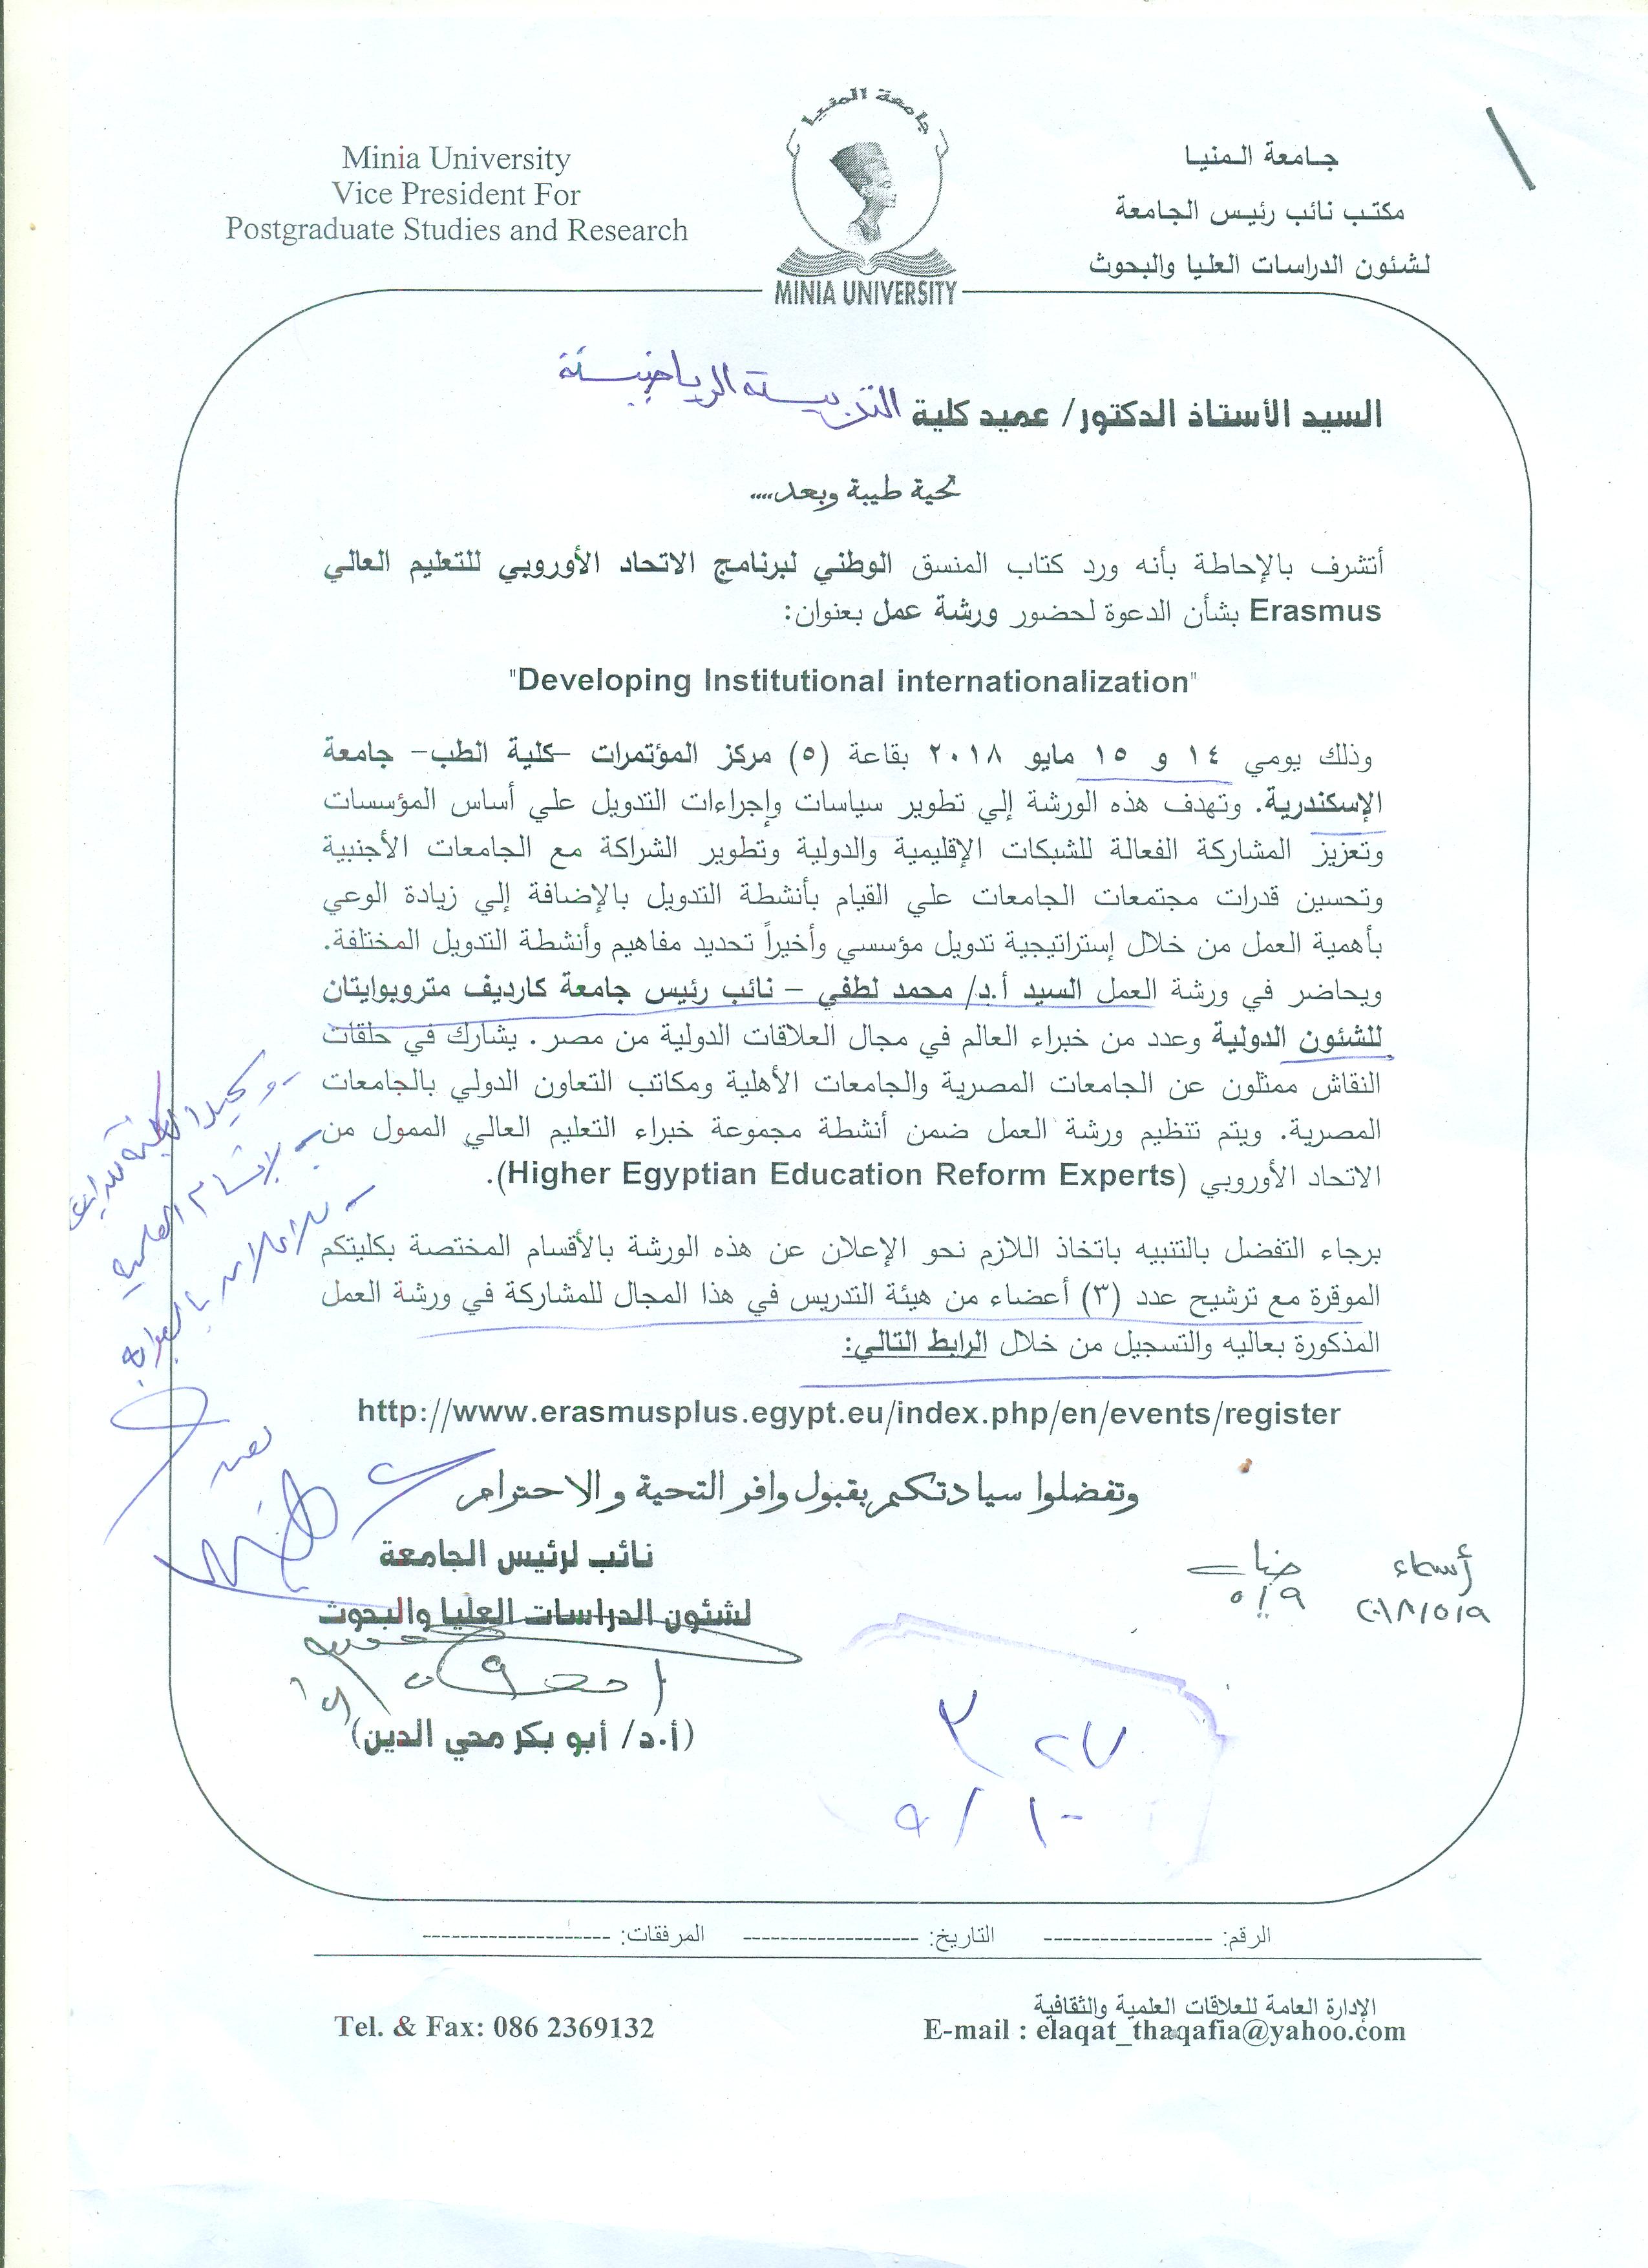 جامعة المنيا
مكتب نائب رئيس الجامعة
لشئون الدراسات العليا والبحوث
جامعة المنيا
MINIA UNIVERSITY
Minia University
Vice President For
Postgraduate Studies and Research
السيد الأستاذ الدكتور/ عميد كلية التربية الرياضية
تحية طيبة وبعد....
أتشرف بالإحاطة بأنه ورد كتاب المنسق الوطني لبرنامج الاتحاد الأوروبي للتعليم العالي
Erasmus بشأن الدعوة لحضور ورشة عمل بعنوان:
"Developing Institutional internationalization"
وذلك يومي ١٤ و ١٥ مايو ٢٠١٨ بقاعة (٥) مركز المؤتمرات –كلية الطب– جامعة
الإسكندرية. وتهدف هذه الورشة إلي تطوير سياسات وإجراءات التدويل علي أساس المؤسسات
وتعزيز المشاركة الفعالة للشبكات الإقليمية والدولية وتطوير الشراكة مع الجامعات الأجنبية
وتحسين قدرات مجتمعات الجامعات علي القيام بأنشطة التدويل بالإضافة إلي زيادة الوعي
بأهمية العمل من خلال إستراتيجية تدويل مؤسسي وأخيراً تحديد مفاهيم وأنشطة التدويل المختلفة.
ويحاضر في ورشة العمل السيد أ.د/ محمد لطفي – نائب رئيس جامعة كارديف متروبوايتان
للشئون الدولية وعدد من خبراء العالم في مجال العلاقات الدولية من مصر. يشارك في حلقات
النقاش ممثلون عن الجامعات المصرية والجامعات الأهلية ومكاتب التعاون الدولي بالجامعات
المصرية. ويتم تنظيم ورشة العمل ضمن أنشطة مجموعة خبراء التعليم العالي الممول من
الاتحاد الأوروبي (Higher Egyptian Education Reform Experts).
برجاء التفضل بالتنبيه باتخاذ اللازم نحو الإعلان عن هذه الورشة بالأقسام المختصة بكليتكم
الموقرة مع ترشيح عدد (٣) أعضاء من هيئة التدريس في هذا المجال للمشاركة في ورشة العمل
المذكورة بعاليه والتسجيل من خلال الرابط التالي:
http://www.erasmusplus.egypt.eu/index.php/en/events/register
وتفضلوا سيادتكم بقبول وافر التحية والاحترام
نائب لرئيس الجامعة
لشئون الدراسات العليا والبحوث
(أ.د/ أبو بكر محي الدين)
أسماء
٢٠١٨/٥/٩
٥/٩
٣٢٧
٥/١٠
الرقم: ------------------ التاريخ: ------------------ المرفقات: -------------------
الإدارة العامة للعلاقات العلمية والثقافية
E-mail : elaqat_thaqafia@yahoo.com
Tel. & Fax: 086 2369132